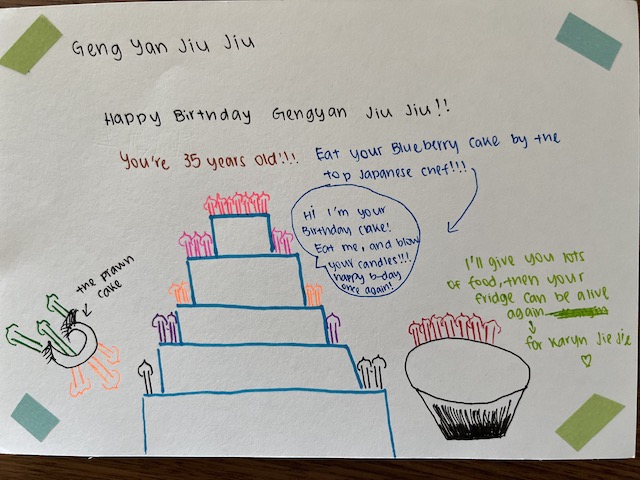 Geng Yan Jiu Jiu
Happy Birthday Gengyan Jiu Jiu!!
You're 35 years old!!!
Eat your Blueberry cake by the
top Japanese chef!!!
Hi I'm your
Birthday cake!
Eat me, and blow
your candles!!!
happy b-day
once again!
the prawn
cake
I'll give you lots
of food, then your
fridge can be alive
again
for Karyn Jie Jie